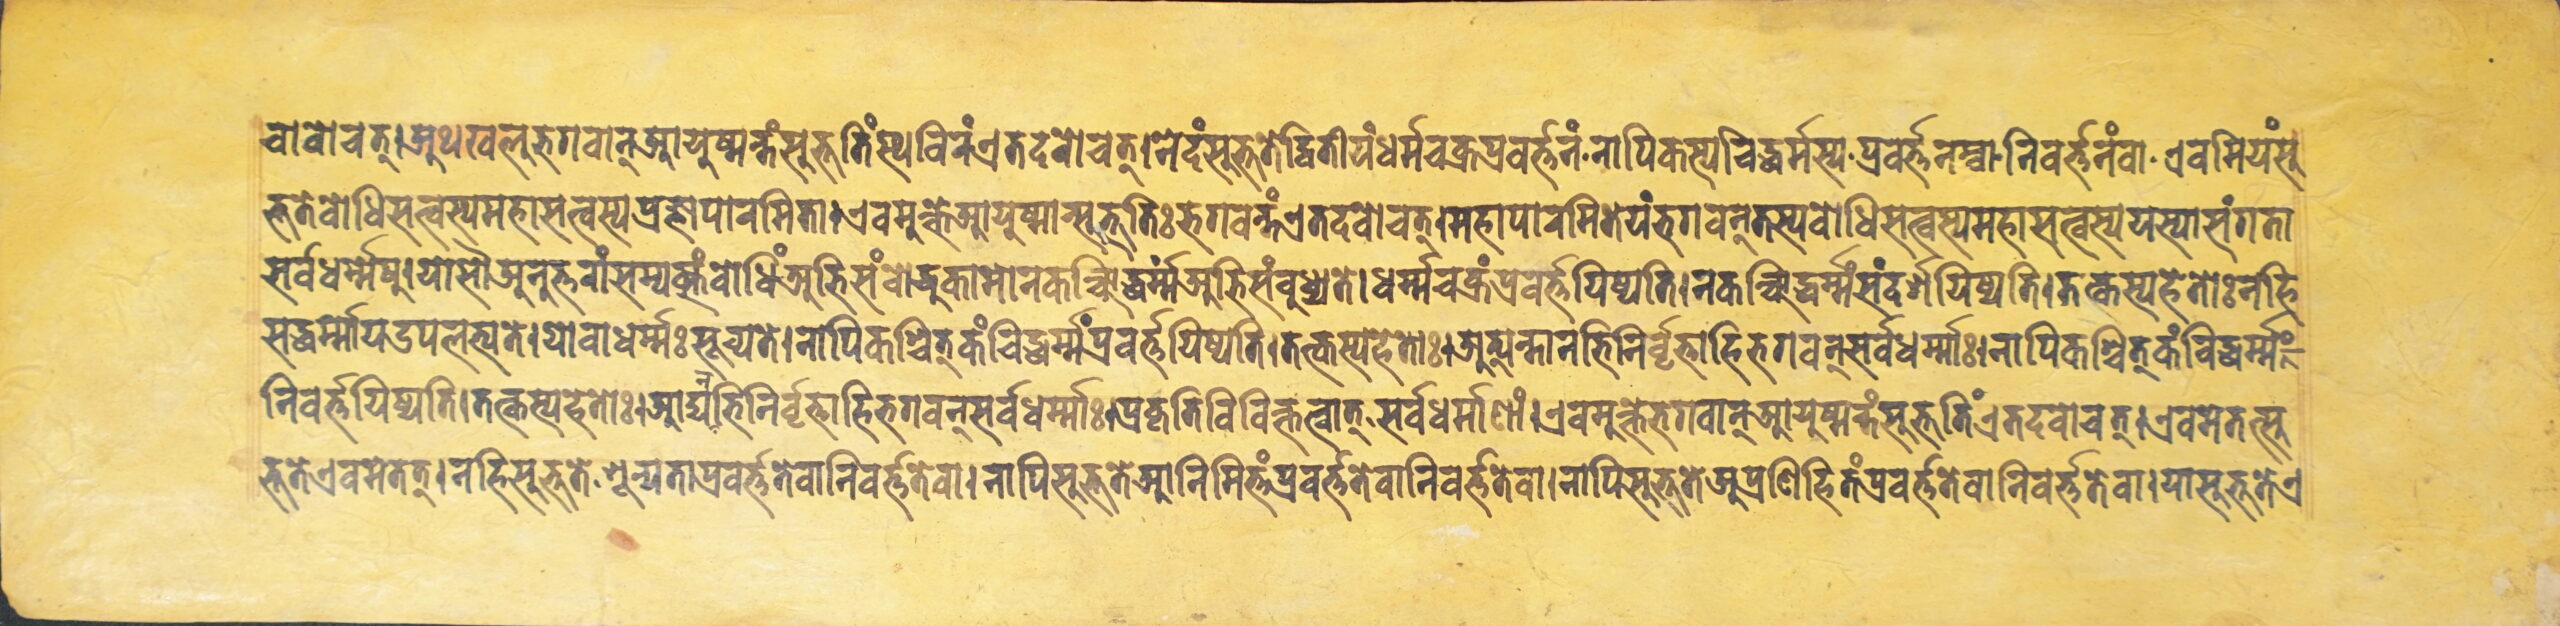 वोवोचत्।अथखलुभगवान्आयुष्मन्तंसुभूतिंस्थविरंएतदवोचत्।नेदंसुभूतेद्वितीयंधर्मचक्रप्रवर्त्तनं·नापिकस्यचिद्धर्मस्य·प्रवर्त्तनम्वा·निवर्त्तनंवा·एवमियंसु
भूतेबोधिसत्वस्यमहासत्वस्यप्रज्ञापारमिता।एवमुक्तेआयुष्मान्सुभूतिःभगवन्तंएतदवोचत्।महापारमितेयंभगवन्तस्यबोधिसत्वस्यमहासत्वस्ययस्यासंगता
सर्वधर्म्मेषु।योसौअनुत्तरांसम्यक्संबोधिंअभिसंबोद्धुकामोनकञ्चिद्धर्म्मंअभिसंबुध्यते।धर्म्मचक्रंप्रवर्त्तयिष्यति।नकञ्चिद्धर्म्मंसंदर्शयिष्यति।तत्कस्यहेतोःनहि
सद्धर्म्मोयउपलभ्यते।योवाधर्म्मःसूच्यते।नापिकश्चित्कंचिद्धर्म्मंप्रवर्त्तयिष्यति।तत्कस्यहेतोः।अत्यन्तानभिनिर्वृत्ताहिभगवन्सर्वधर्म्माः।नापिकश्चित्कंचिद्धर्म्मं
निवर्त्तयिष्यति।तत्कस्यहेतोः।आद्यनभिनिर्वृत्ताहिभगवन्सर्वधर्म्माः।प्रकृतिविविक्तत्वात्·सर्वधर्माणां।एवमुक्तेभगवान्आयुष्मन्तंसुभूतिंएतदवोचत्।एवमेतत्सु
भूतेएवमेतत्।नहिसुभूते·शून्यताप्रवर्त्ततेवानिवर्त्ततेवा।नापिसुभूतेआनिमित्तंप्रवर्त्ततेवानिवर्त्ततेवा।नापिसुभूतेअप्रणिहितंप्रवर्त्ततेवानिवर्त्ततेवा।यासुभूतेए